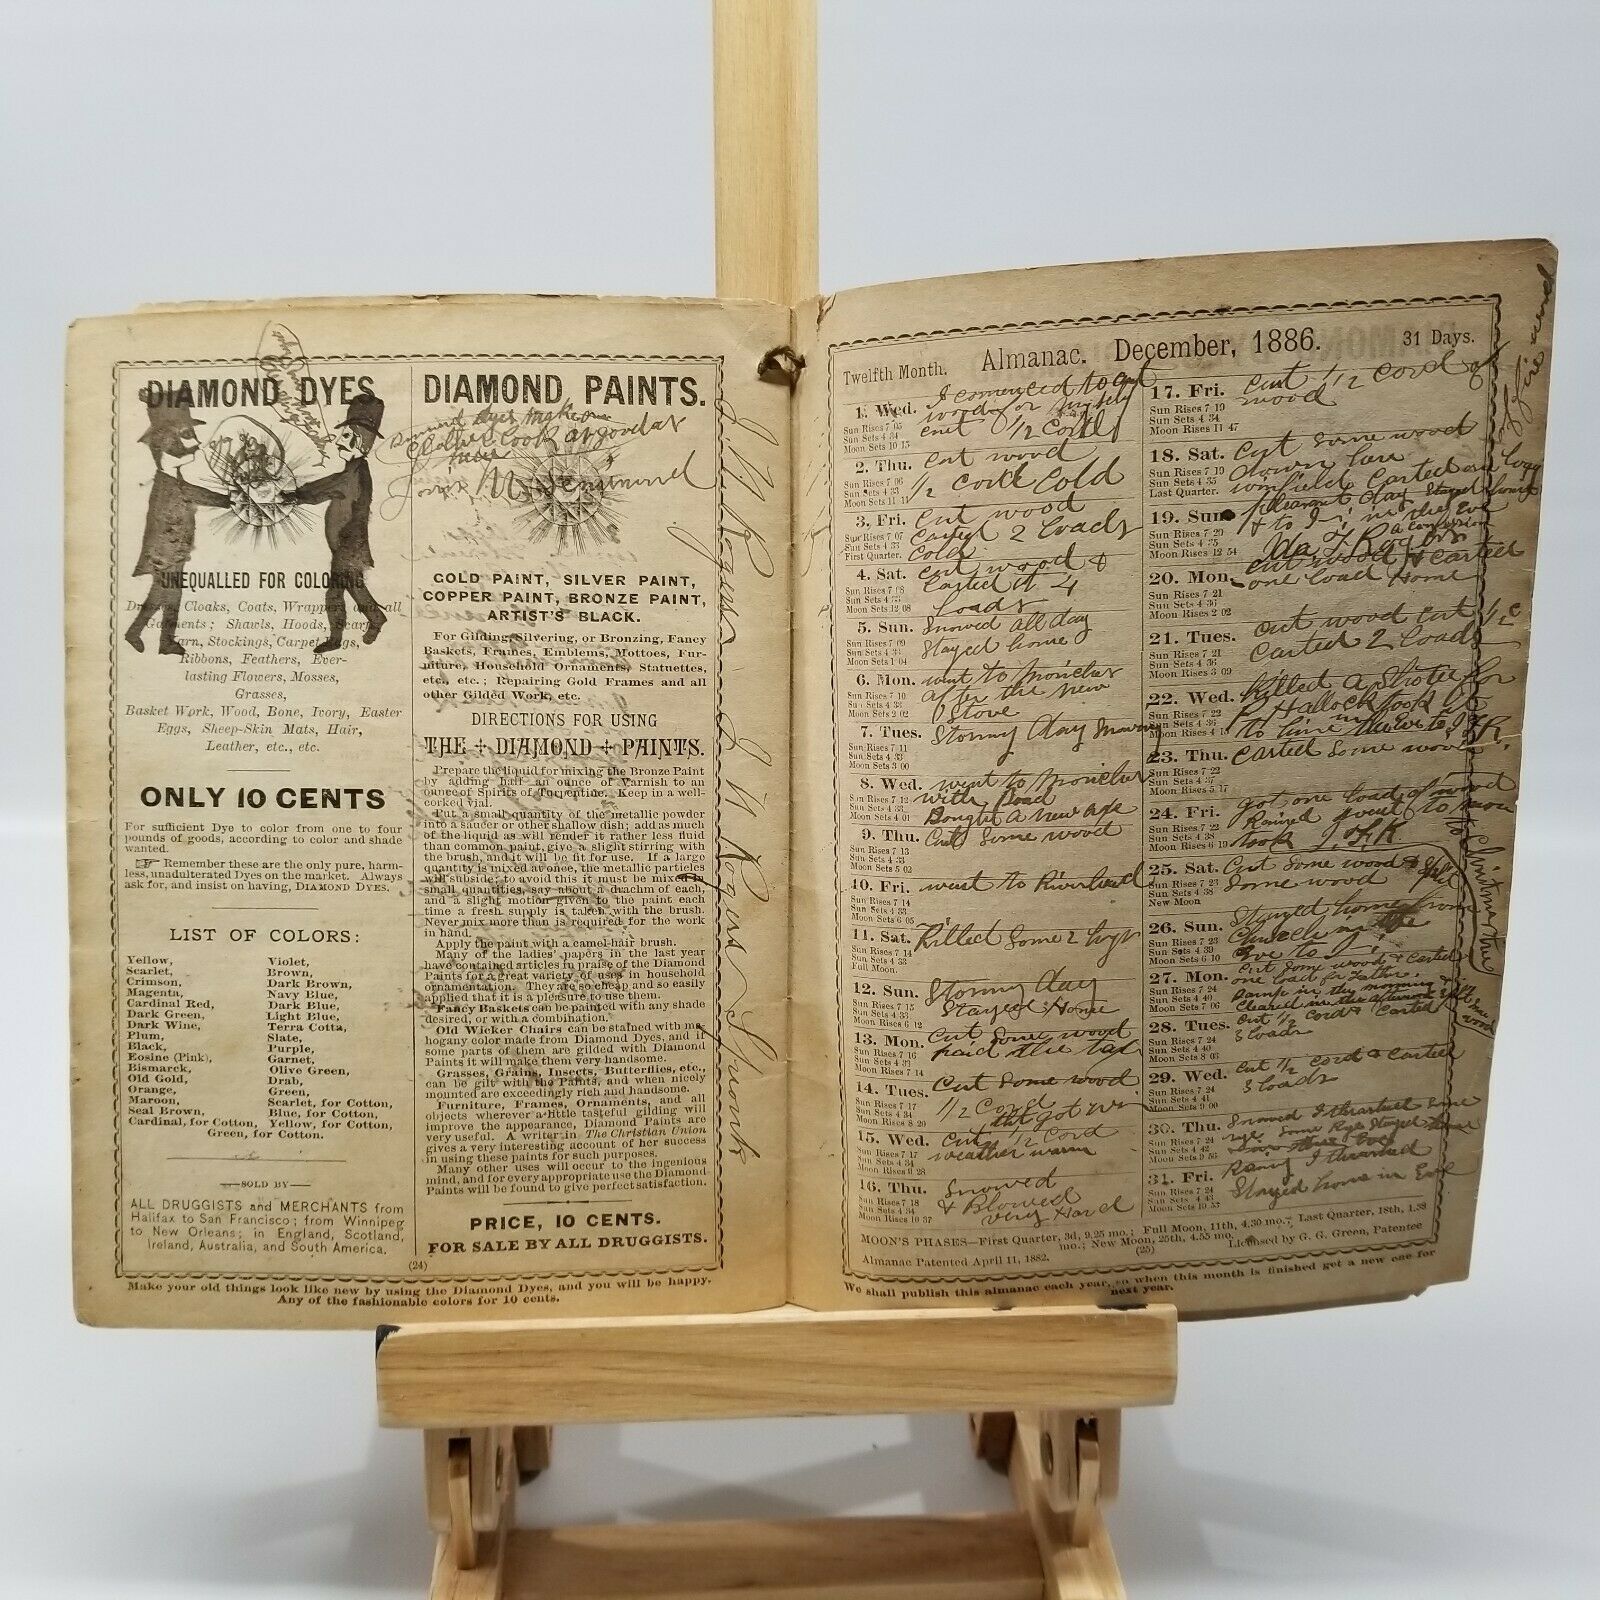 DIAMOND DYES
UNEQUALLED FOR COLORING
Dresses, Cloaks, Coats, Wrappers and all
Garments; Shawls, Hoods, Scarfs,
Yarn, Stockings, Carpet Rags,
Ribbons, Feathers, Ever-
lasting Flowers, Mosses,
Grasses,
Basket Work, Wood, Bone, Ivory, Easter
Eggs, Sheep-Skin Mats, Hair,
Leather, etc., etc.
ONLY 10 CENTS
For sufficient Dye to color from one to four
pounds of goods, according to color and shade
wanted.
☞ Remember these are the only pure, harm-
less, unadulterated Dyes on the market. Always
ask for, and insist on having, DIAMOND DYES.
LIST OF COLORS:
Yellow,
Scarlet,
Crimson,
Magenta,
Cardinal Red,
Dark Green,
Dark Wine,
Plum,
Black,
Eosine (Pink),
Bismarck,
Old Gold,
Orange,
Maroon,
Seal Brown,
Cardinal, for Cotton,
Violet,
Brown,
Dark Brown,
Navy Blue,
Dark Blue,
Light Blue,
Terra Cotta,
Slate,
Purple,
Garnet,
Olive Green,
Drab,
Green,
Scarlet, for Cotton,
Blue, for Cotton,
Yellow, for Cotton,
Green, for Cotton.
—SOLD BY—
ALL DRUGGISTS and MERCHANTS from
Halifax to San Francisco; from Winnipeg
to New Orleans; in England, Scotland,
Ireland, Australia, and South America.
DIAMOND PAINTS.
Diamond dyes make
Clothes look as good as
new
GOLD PAINT, SILVER PAINT,
COPPER PAINT, BRONZE PAINT,
ARTIST'S BLACK.
For Gilding, Silvering, or Bronzing, Fancy
Baskets, Frames, Emblems, Mottoes, Fur-
niture, Household Ornaments, Statuettes,
etc., etc.; Repairing Gold Frames and all
other Gilded Work, etc.
DIRECTIONS FOR USING
THE + DIAMOND + PAINTS.
Prepare the liquid for mixing the Bronze Paint
by adding half an ounce of Varnish to an
ounce of Spirits of Turpentine. Keep in a well-
corked vial.
Put a small quantity of the metallic powder
into a saucer or other shallow dish; add as much
of the liquid as will render it rather less fluid
than common paint, give a slight stirring with
the brush, and it will be fit for use. If a large
quantity is mixed at once, the metallic particles
will subside; to avoid this it must be mixed in
small quantities, say about a drachm of each,
and a slight motion given to the paint each
time a fresh supply is taken with the brush.
Never mix more than is required for the work
in hand.
Apply the paint with a camel-hair brush.
Many of the ladies' papers in the last year
have contained articles in praise of the Diamond
Paints for a great variety of uses in household
ornamentation. They are so cheap and so easily
applied that it is a pleasure to use them.
Fancy Baskets can be painted with any shade
desired, or with a combination.
Old Wicker Chairs can be stained with ma-
hogany color made from Diamond Dyes, and if
some parts of them are gilded with Diamond
Paints it will make them very handsome.
Grasses, Grains, Insects, Butterflies, etc.,
can be gilt with the Paints, and when nicely
mounted are exceedingly rich and handsome.
Furniture, Frames, Ornaments, and all
objects wherever a little tasteful gilding will
improve the appearance, Diamond Paints are
very useful. A writer in The Christian Union
gives a very interesting account of her success
in using these paints for such purposes.
Many other uses will occur to the ingenious
mind, and for every appropriate use the Diamond
Paints will be found to give perfect satisfaction.
PRICE, 10 CENTS.
FOR SALE BY ALL DRUGGISTS.
(24)
Make your old things look like new by using the Diamond Dyes, and you will be happy.
Any of the fashionable colors for 10 cents.
J. N. Rogers
J. N. Rogers
Twelfth Month. Almanac. December, 1886. 31 Days.
1. Wed. I comenced to cut
wood for myself
cut 1/2 cord
Sun Rises 7 05
Sun Sets 4 34
Moon Sets 10 15
2. Thu. Cut wood
1/2 cord Cold
Sun Rises 7 06
Sun Sets 4 33
Moon Sets 11 11
3. Fri. Cut wood
Carted 2 Loads
Cold
Sun Rises 7 07
Sun Sets 4 33
First Quarter.
4. Sat. Cut wood &
Carted it 4
Loads
Sun Rises 7 08
Sun Sets 4 33
Moon Sets 12 08
5. Sun. Snowed all day
Stayed home
Sun Rises 7 09
Sun Sets 4 33
Moon Sets 1 04
6. Mon. went to Moriches
after the new
Stove
Sun Rises 7 10
Sun Sets 4 33
Moon Sets 2 02
7. Tues. Stormy day Snowing
Sun Rises 7 11
Sun Sets 4 33
Moon Sets 3 00
8. Wed. went to Moriches
with Load
Bought a new axe
Sun Rises 7 12
Sun Sets 4 33
Moon Sets 4 01
9. Thu. Cut Some wood
Sun Rises 7 13
Sun Sets 4 33
Moon Sets 5 02
10. Fri. went to Riverhead
Sun Rises 7 14
Sun Sets 4 33
Moon Sets 6 05
11. Sat. Killed Some 2 hogs
Sun Rises 7 14
Sun Sets 4 33
Full Moon.
12. Sun. Stormy day
Stayed Home
Sun Rises 7 15
Sun Sets 4 33
Moon Rises 6 12
13. Mon. Cut Some wood
paid the tax
Sun Rises 7 16
Sun Sets 4 33
Moon Rises 7 14
14. Tues. Cut Some wood
1/2 Cord
Sun Rises 7 17
Sun Sets 4 34
Moon Rises 8 20
15. Wed. Cut 1/2 Cord
weather warm
Sun Rises 7 17
Sun Sets 4 34
Moon Rises 9 28
16. Thu. Snowed
& Blowed
very Hard
Sun Rises 7 18
Sun Sets 4 34
Moon Rises 10 37
17. Fri. Cut 1/2 cord of
wood
Sun Rises 7 19
Sun Sets 4 34
Moon Rises 11 47
18. Sat. Cut Some wood
down here
Sun Rises 7 19
Sun Sets 4 35
Last Quarter.
19. Sun. pleasant day Stayed home
Ida F Rogers
Sun Rises 7 20
Sun Sets 4 35
Moon Rises 12 54
20. Mon. Cut wood & Carted
one Load Home
Sun Rises 7 21
Sun Sets 4 36
Moon Rises 2 02
21. Tues. Cut wood cut 1/2 c
Carted 2 Loads
Sun Rises 7 21
Sun Sets 4 36
Moon Rises 3 09
22. Wed. Killed a Shote for
R Hallock took it
Sun Rises 7 22
Sun Sets 4 36
Moon Rises 4 13
23. Thu. Carted Some wood
Sun Rises 7 22
Sun Sets 4 37
Moon Rises 5 17
24. Fri. got one load of wood
Rained went to
took I. F. R
to Christmas tree
Sun Rises 7 22
Sun Sets 4 38
Moon Rises 6 19
25. Sat. Cut Some wood & Split
Some wood
Sun Rises 7 23
Sun Sets 4 38
New Moon
26. Sun. Stayed home from
Church
Sun Rises 7 23
Sun Sets 4 39
Moon Sets 6 10
27. Mon. Cut Some wood & Carted
one load for Father.
Sun Rises 7 24
Sun Sets 4 40
Moon Sets 7 06
28. Tues. Cut 1/2 Cord & Carted
3 Loads
Sun Rises 7 24
Sun Sets 4 40
Moon Sets 8 03
29. Wed. Cut 1/2 Cord & Carted
3 Loads
Sun Rises 7 24
Sun Sets 4 41
Moon Sets 9 00
30. Thu. Snowed I thrashed Some
rye
Sun Rises 7 24
Sun Sets 4 42
Moon Sets 9 56
31. Fri. Rainy I thrashed
Stayed home in Eve
Sun Rises 7 24
Sun Sets 4 43
Moon Sets 10 53
MOON'S PHASES—First Quarter, 3d, 9.25 mo.; Full Moon, 11th, 4.30 mo.; Last Quarter, 18th, 1.38
mo.; New Moon, 25th, 4.55 mo.
Almanac Patented April 11, 1882. (25) Licensed by G. G. Green, Patentee
We shall publish this almanac each year, so when this month is finished get a new one for
next year.